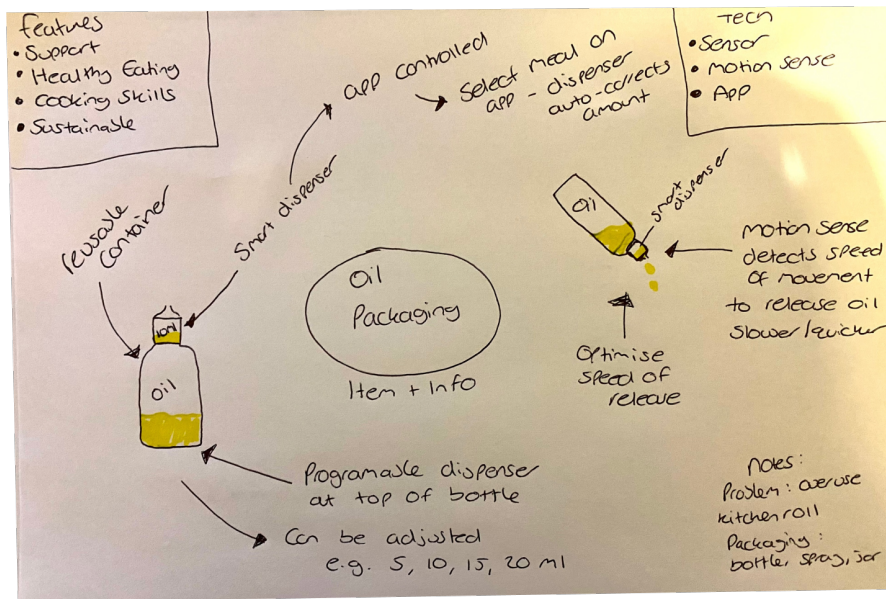 features
• Support
• Healthy Eating
• Cooking Skills
• Sustainable
app controlled
Select meal on
app - dispenser
auto-collects
amount
Tech
• Sensor
• motion sense
• App
reusable
container
Smart dispenser
10ml
Oil
Oil
Packaging
Item + Info
Oil
smart
dispenser
motion sense
detects speed
of movement
to release oil
slower/quicker
Optimise
speed of
release
Programable dispenser
at top of bottle
Can be adjusted
e.g. 5, 10, 15, 20 ml
Notes:
Problem: overuse
kitchen roll
Packaging:
bottle, spray, jar